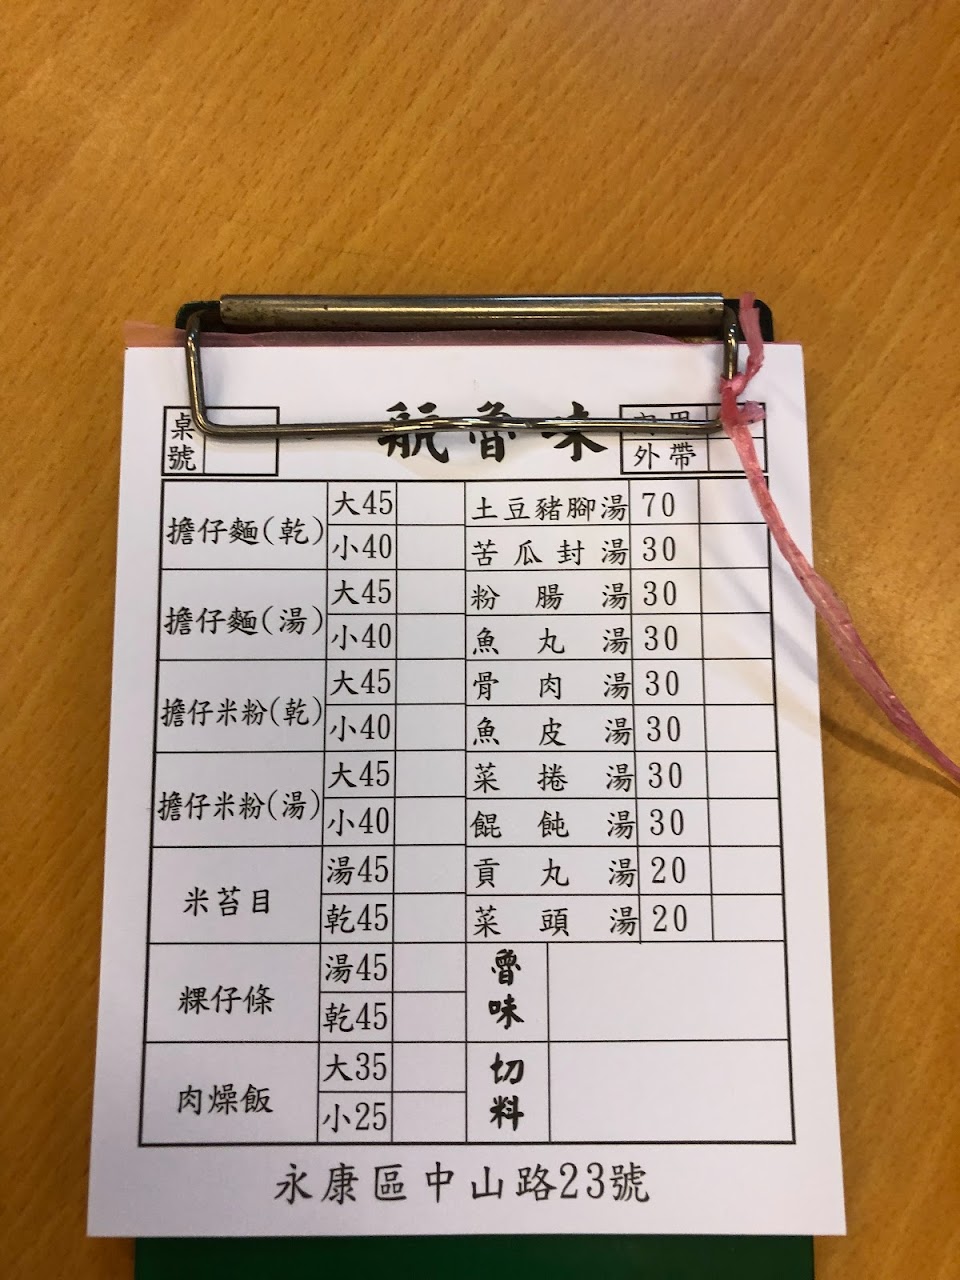 桌號
航魯味
外帶
擔仔麵(乾) 大45
小40
擔仔麵(湯) 大45
小40
擔仔米粉(乾) 大45
小40
擔仔米粉(湯) 大45
小40
米苔目 湯45
乾45
粿仔條 湯45
乾45
肉燥飯 大35
小25
土豆豬腳湯 70
苦瓜封湯 30
粉腸湯 30
魚丸湯 30
骨肉湯 30
魚皮湯 30
菜捲湯 30
餛飩湯 30
貢丸湯 20
菜頭湯 20
魯味
切料
永康區中山路23號